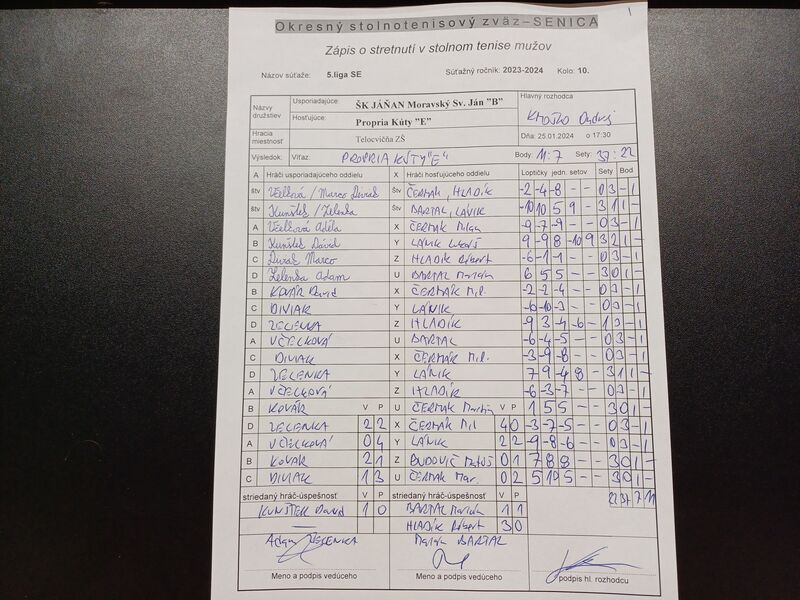 1
Okresný stolnotenisový zväz–SENICA
Zápis o stretnutí v stolnom tenise mužov
Názov súťaže: 5.liga SE Súťažný ročník: 2023-2024 Kolo: 10.
Názvy družstiev Usporiadajúce: ŠK JÁŇAN Moravský Sv. Ján "B" Hlavný rozhodca
Hosťujúce: Propria Kúty "E" Ondrej
Hracia miestnosť Telocvičňa ZŠ Dňa: 25.01.2024 o 17:30
Výsledok: Víťaz: PROPRIA KÚTY "E" Body: 11:7 Sety: 37:22
A Hráči usporiadajúceho oddielu X Hráči hosťujúceho oddielu Loptičky jedn. setov Sety Bod
štv Včelková / Marco Štv ČERMÁK, HLADÍK -2 -4 -8 - - 0 3 - 1
štv Kunštek / Zelenka Štv BARTAL, LÁNIK -10 10 5 9 - 3 1 1 -
A Včelková Adéla X ČERMÁK Milan -9 -7 -9 - - 0 3 - 1
B Kunštek Dávid Y LÁNIK 9 -9 8 -10 9 3 2 1 -
C Marco Z HLADÍK Róbert -6 -1 -1 - - 0 3 - 1
D Zelenka Adam U BARTAL Marián 6 5 5 - - 3 0 1 -
B KOVÁR David X ČERMÁK Mil. -2 -2 -4 - - 0 3 - 1
C DIVIAK Y LÁNIK -6 -10 -3 - - 0 3 - 1
D ZELENKA Z HLADÍK -9 3 -4 -6 - 1 3 - 1
A VČELKOVÁ U BARTAL -6 -4 -5 - - 0 3 - 1
C DIVIAK X ČERMÁK Mil. -3 -9 -8 - - 0 3 - 1
D ZELENKA Y LÁNIK 7 9 -4 8 - 3 1 1 -
A VČELKOVÁ Z HLADÍK -6 -3 -7 - - 0 3 - 1
B KOVÁR V P U ČERMÁK Martin V P 1 5 5 - - 3 0 1 -
D ZELENKA 2 2 X ČERMÁK Mil 4 0 -3 -7 -5 - - 0 3 - 1
A VČELKOVÁ 0 4 Y LÁNIK 2 2 -9 -8 -6 - - 0 3 - 1
B KOVÁR 2 1 Z BUDOVIČ Matúš 0 1 7 8 8 - - 3 0 1 -
C DIVIAK 1 3 U ČERMÁK Mar. 0 2 5 10 5 - - 3 0 1 -
striedaný hráč-úspešnosť V P striedaný hráč-úspešnosť V P 22 37 7 11
KUNŠTEK David 1 0 BARTAL Marián 1 1
— HLADÍK Róbert 3 0
Adam ZELENKA Marián BARTAL
Meno a podpis vedúceho Meno a podpis vedúceho podpis hl. rozhodcu